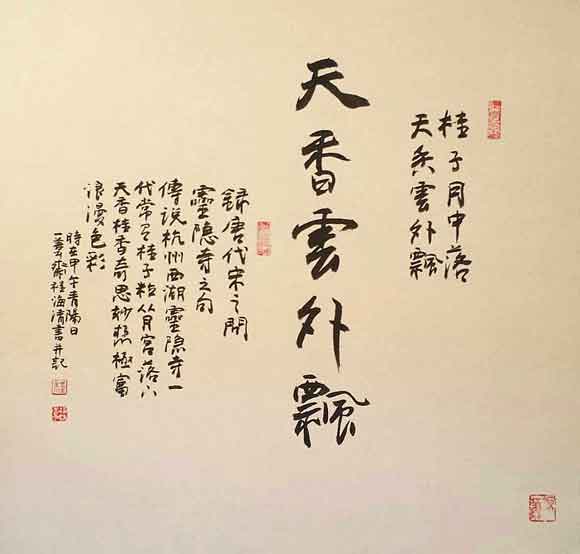 桂子月中落
天香雲外飄
天香雲外飄
録唐代宋之問
靈隐寺之句
傳说杭州西湖靈隐寺一
代常 桂子粒从月宮落
天香桂香奇思妙想極富
浪漫色彩
時在甲午青陽日
一 齋 海清書并記